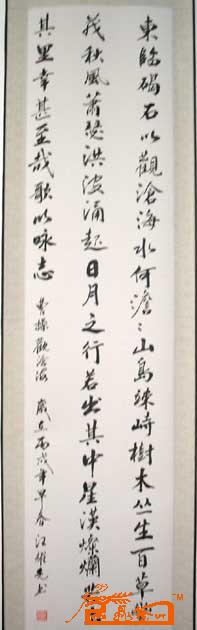 東臨碣石以觀滄海水何澹〻山島竦峙樹木丛生百草豐
茂秋風蕭瑟洪波涌起日月之行若出其中星漢燦爛若出
其里幸甚至哉歌以咏志
曹操觀滄海 歲在丙戌年早春 汪 书